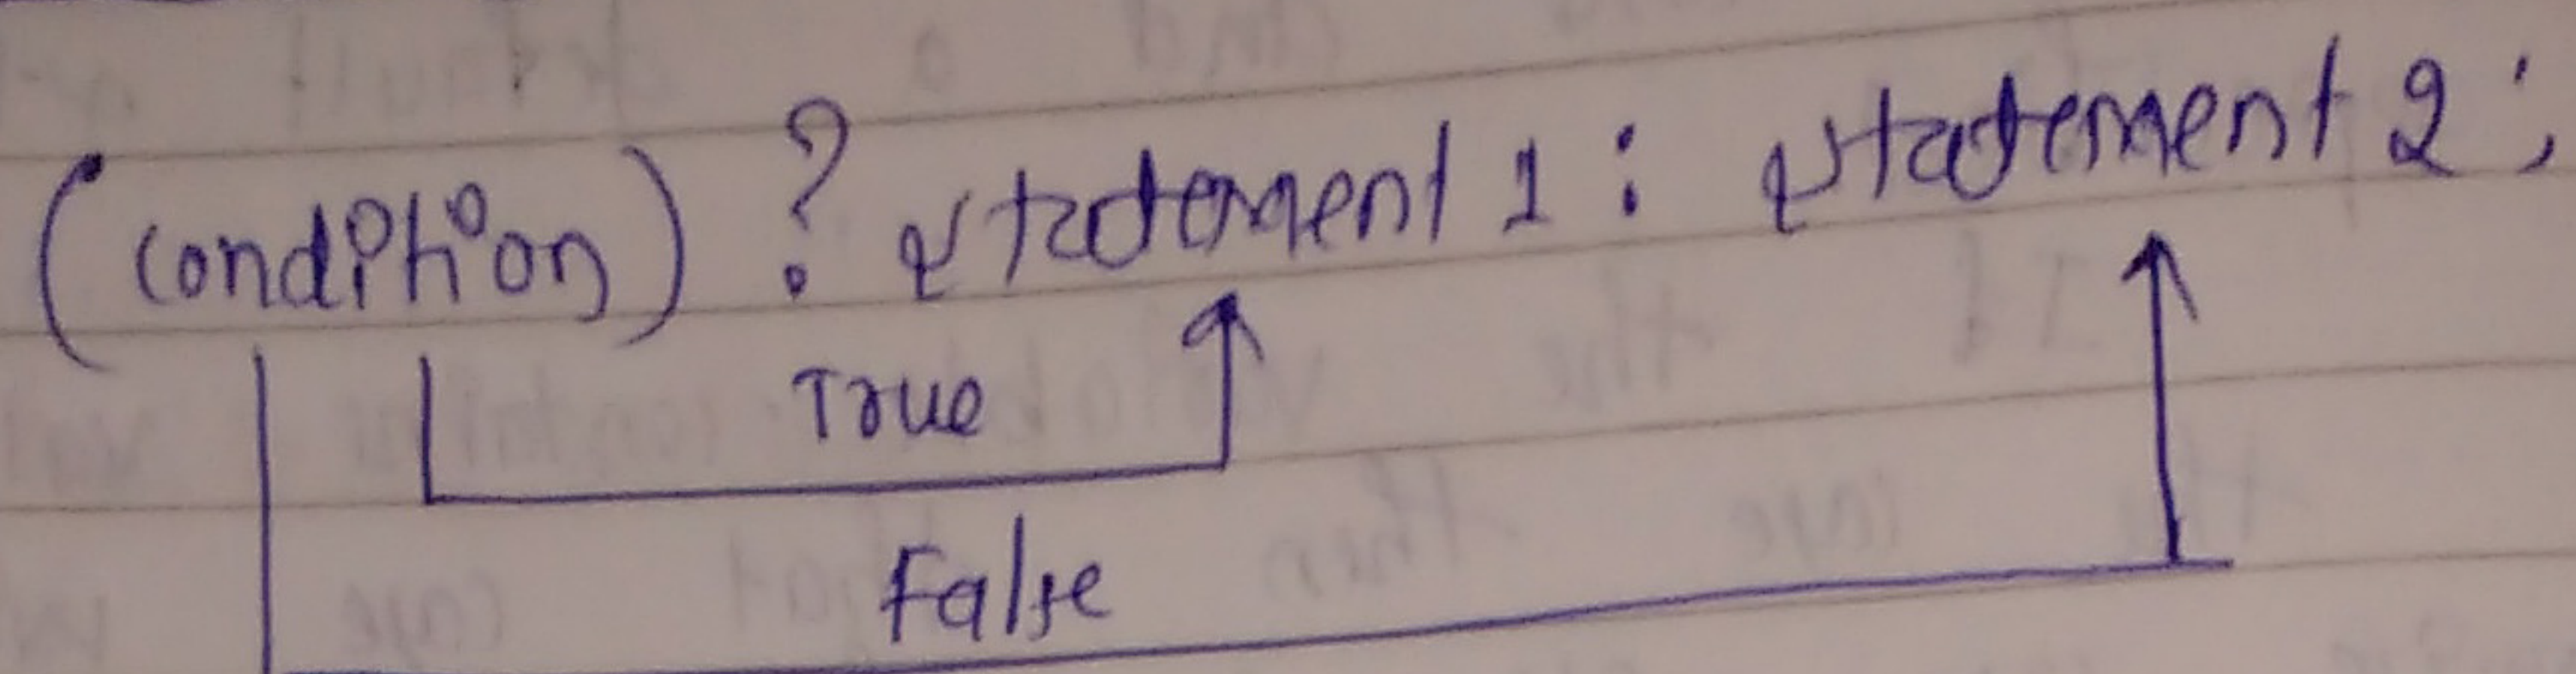 (condition) ? statement 1 : statement 2 ;
True
False